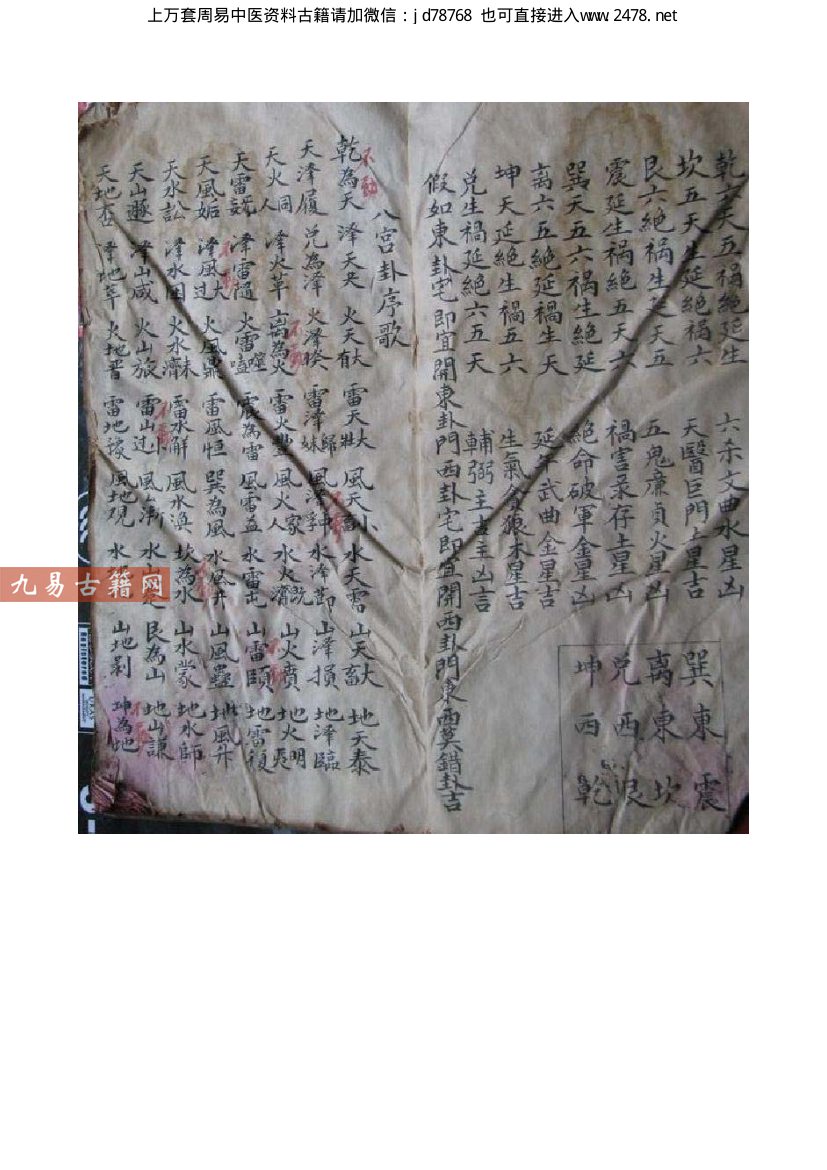 上万套周易中医资料古籍请加微信：jd78768 也可直接进入www.2478.net
乾六天五禍絶延生
坎五天生延絶禍六
艮六絶禍生延天五
震延生禍絶五天六
巽天五六禍生絶延
离六五絶延禍生天
坤天延絶生禍五六
兌生禍延絶六五天
六杀文曲水星凶
天醫巨門土星吉
五鬼廉貞火星凶
禍害彔存土星凶
絶命破軍金星凶
延年武曲金星吉
生氣貪狼木星吉
輔弼主吉主凶吉
巽東震
离東坎
兌西艮
坤西乾
假如東卦宅即宜開東卦門西卦宅即宜開西卦門東西莫錯卦吉
八宮卦序歌
乾為天 澤天夬 火天大有 雷天大壯 風天小 水天需 山天大畜 地天泰
天澤履 兌為澤 火澤睽 雷澤歸妹 風澤中孚 水澤節 山澤損 地澤臨
天火同人 澤火革 离為火 雷火豐 風火家人 水火既濟 山火賁 地火明夷
天雷 澤雷隨 火雷噬嗑 震為雷 風雷益 水雷屯 山雷頤 地雷復
天風姤 澤風大过 火風鼎 雷風恒 巽為風 水風井 山風蠱 地風升
天水訟 澤水困 火水未濟 雷水解 風水渙 坎為水 山水蒙 地水師
天山遯 澤山咸 火山旅 雷山小过 風山漸 水山 艮為山 地山謙
天地否 澤地萃 火地晋 雷地豫 風地观 水 山地剝 坤為地
不動
九易古籍网